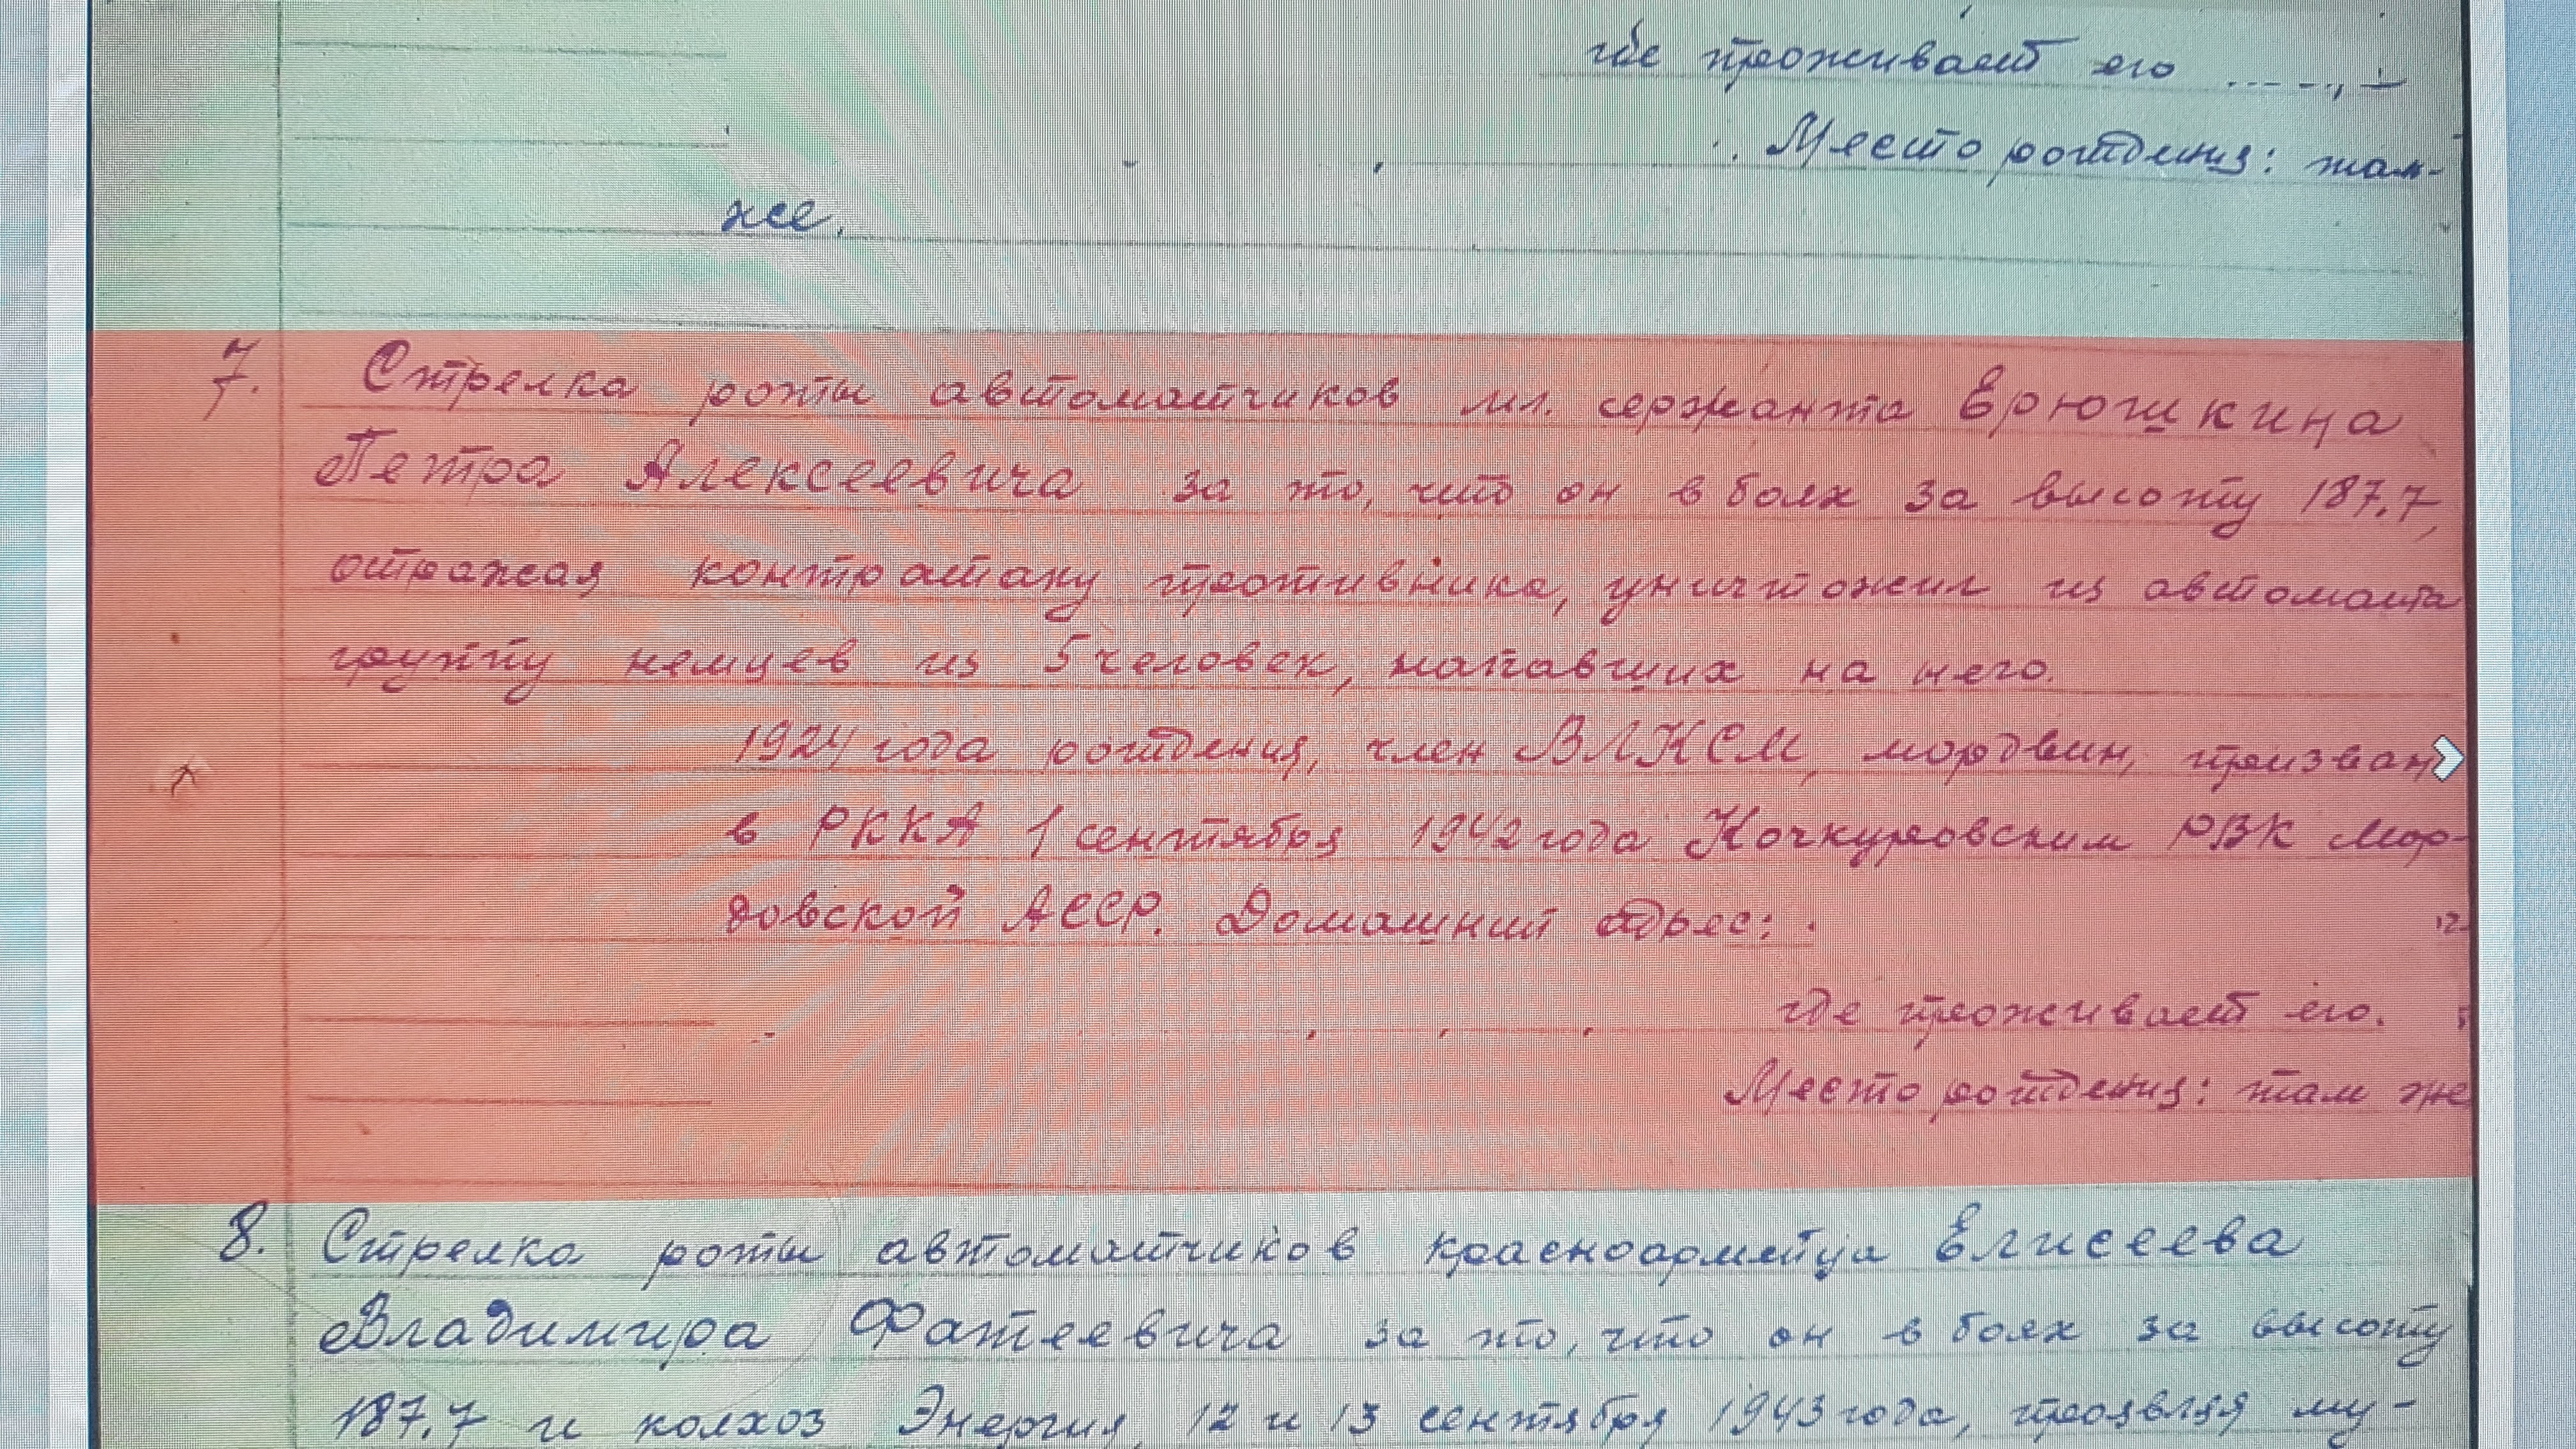 где проживает его
Место рождения: там-
же.
7. Стрелка роты автоматчиков мл. сержанта Ерюшкина
Петра Алексеевича за то, что он в боях за высоту 187.7,
отражая контратаку противника, уничтожил из автомата
группу немцев из 5 человек, напавших на него.
1924 года рождения, член ВЛКСМ, мордвин, призван
в РККА 1 сентября 1942 года Кочкуровским РВК Мор-
довской АССР. Домашний адрес:
где проживает его.
Место рождения: там же
8. Стрелка роты автоматчиков красноармейца Елисеева
Владимира Фатеевича за то, что он в боях за высоту
187.7 и колхоз Энергия, 12 и 13 сентября 1943 года, проявляя му-